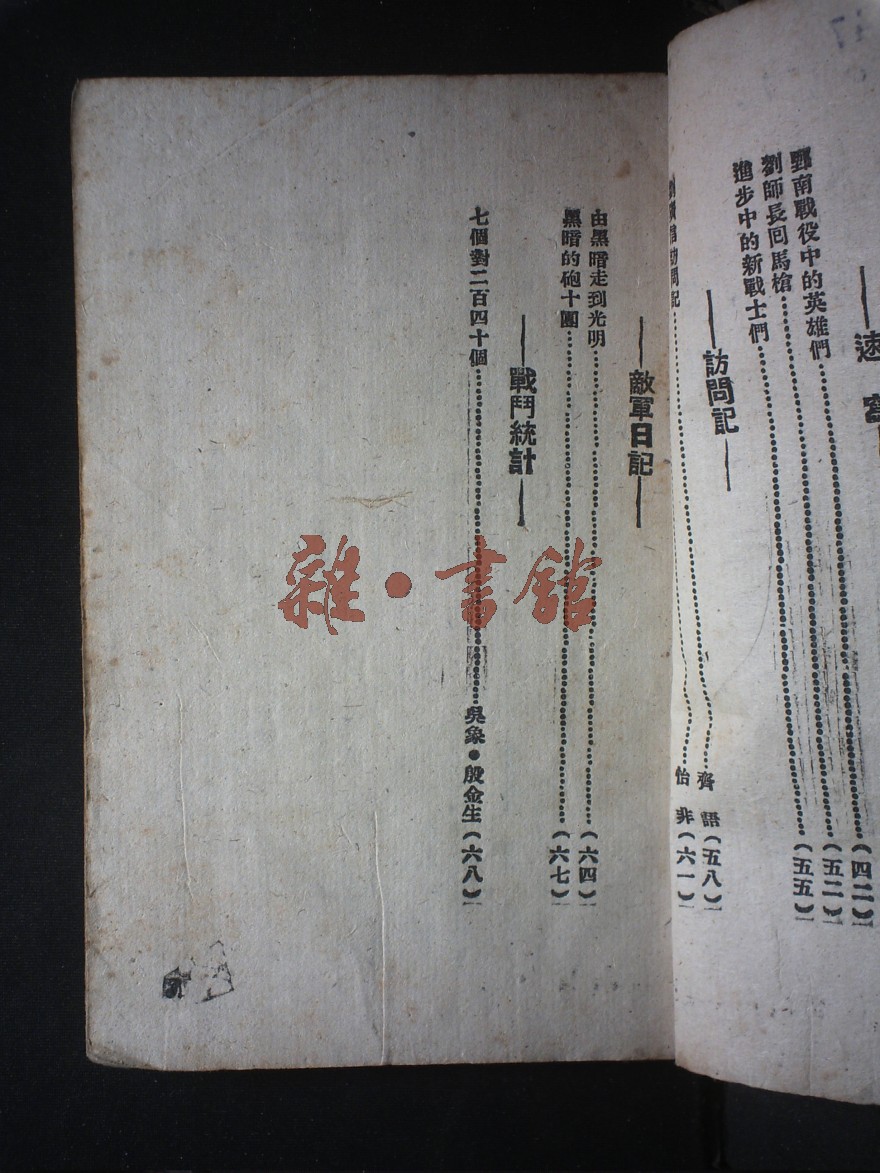 —速
鄄南戰役中的英雄們……(四二)
劉師長回馬槍……(五二)
進步中的新戰士們……(五五)
—訪問記—
……齊語(五八)
訪問記……怡非(六一)
—敵軍日記—
由黑暗走到光明……(六四)
黑暗的砲十團……(六七)
—戰鬥統計—
七個對二百四十個……吳象•殷金生(六八)
雜•書館